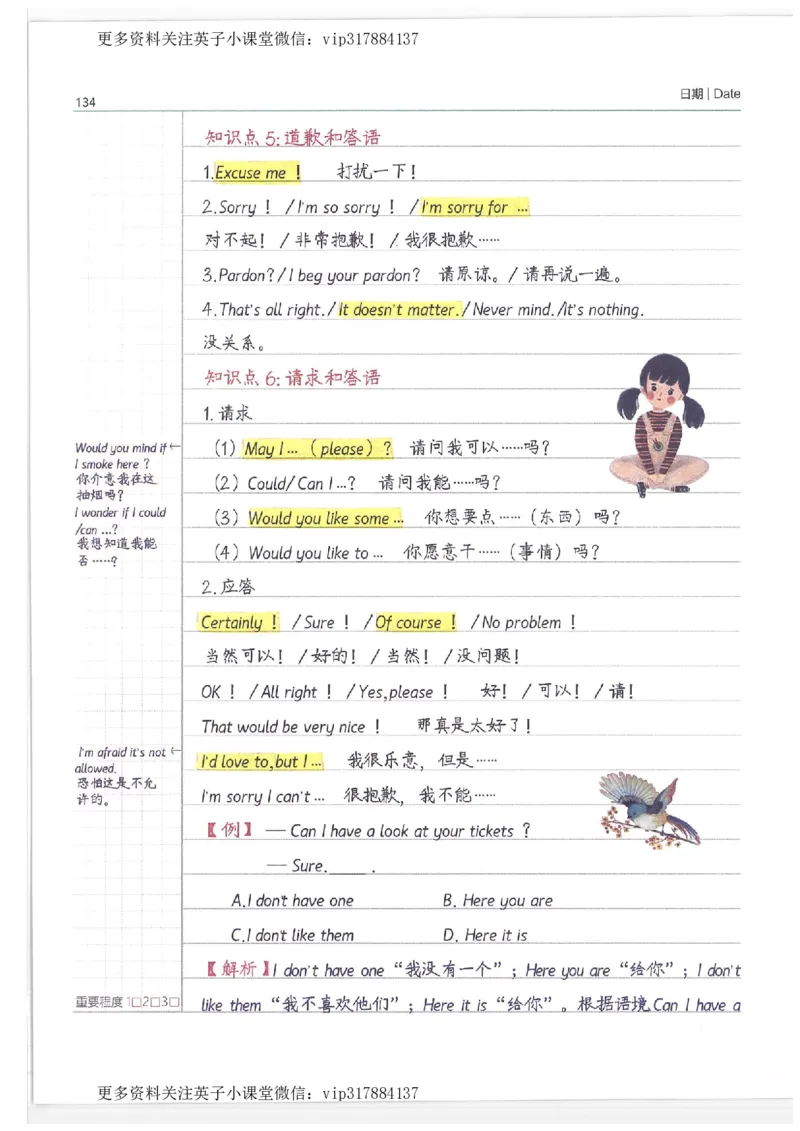 更多资料关注英子小课堂微信：vip317884137
134
日期 | Date
知识点5:道歉和答语
1.Excuse me！ 打扰一下！
2.Sorry！ /I'm so sorry！ /I'm sorry for …
对不起！ /非常抱歉！ /我很抱歉……
3.Pardon?/I beg your pardon? 请原谅。/请再说一遍。
4.That's all right./It doesn't matter./Never mind./It's nothing.
没关系。
知识点6:请求和答语
1.请求
（1）May I…（please）? 请问我可以……吗?
（2）Could/Can I…? 请问我能……吗?
（3）Would you like some… 你想要点……（东西）吗?
（4）Would you like to… 你愿意干……（事情）吗?
Would you mind if←
I smoke here ?
你介意我在这
抽烟吗?
I wonder if I could
/can …?
我想知道我能
否……?
2.应答
Certainly！ /Sure！ /Of course！ /No problem！
当然可以！ /好的！ /当然！ /没问题！
OK！ /All right！ /Yes,please！ 好！ /可以！ /请！
That would be very nice！ 那真是太好了！
I'd love to,but I… 我很乐意，但是……
I'm sorry I can't… 很抱歉，我不能……
I'm afraid it's not←
allowed.
恐怕这是不允
许的。
【例】 — Can I have a look at your tickets ?
— Sure.____ .
A.I don't have one B. Here you are
C.I don't like them D. Here it is
【解析】I don't have one“我没有一个”；Here you are“给你”；I don't
like them“我不喜欢他们”；Here it is“给你”。根据语境Can I have a
重要程度 1□2□3□
更多资料关注英子小课堂微信：vip317884137